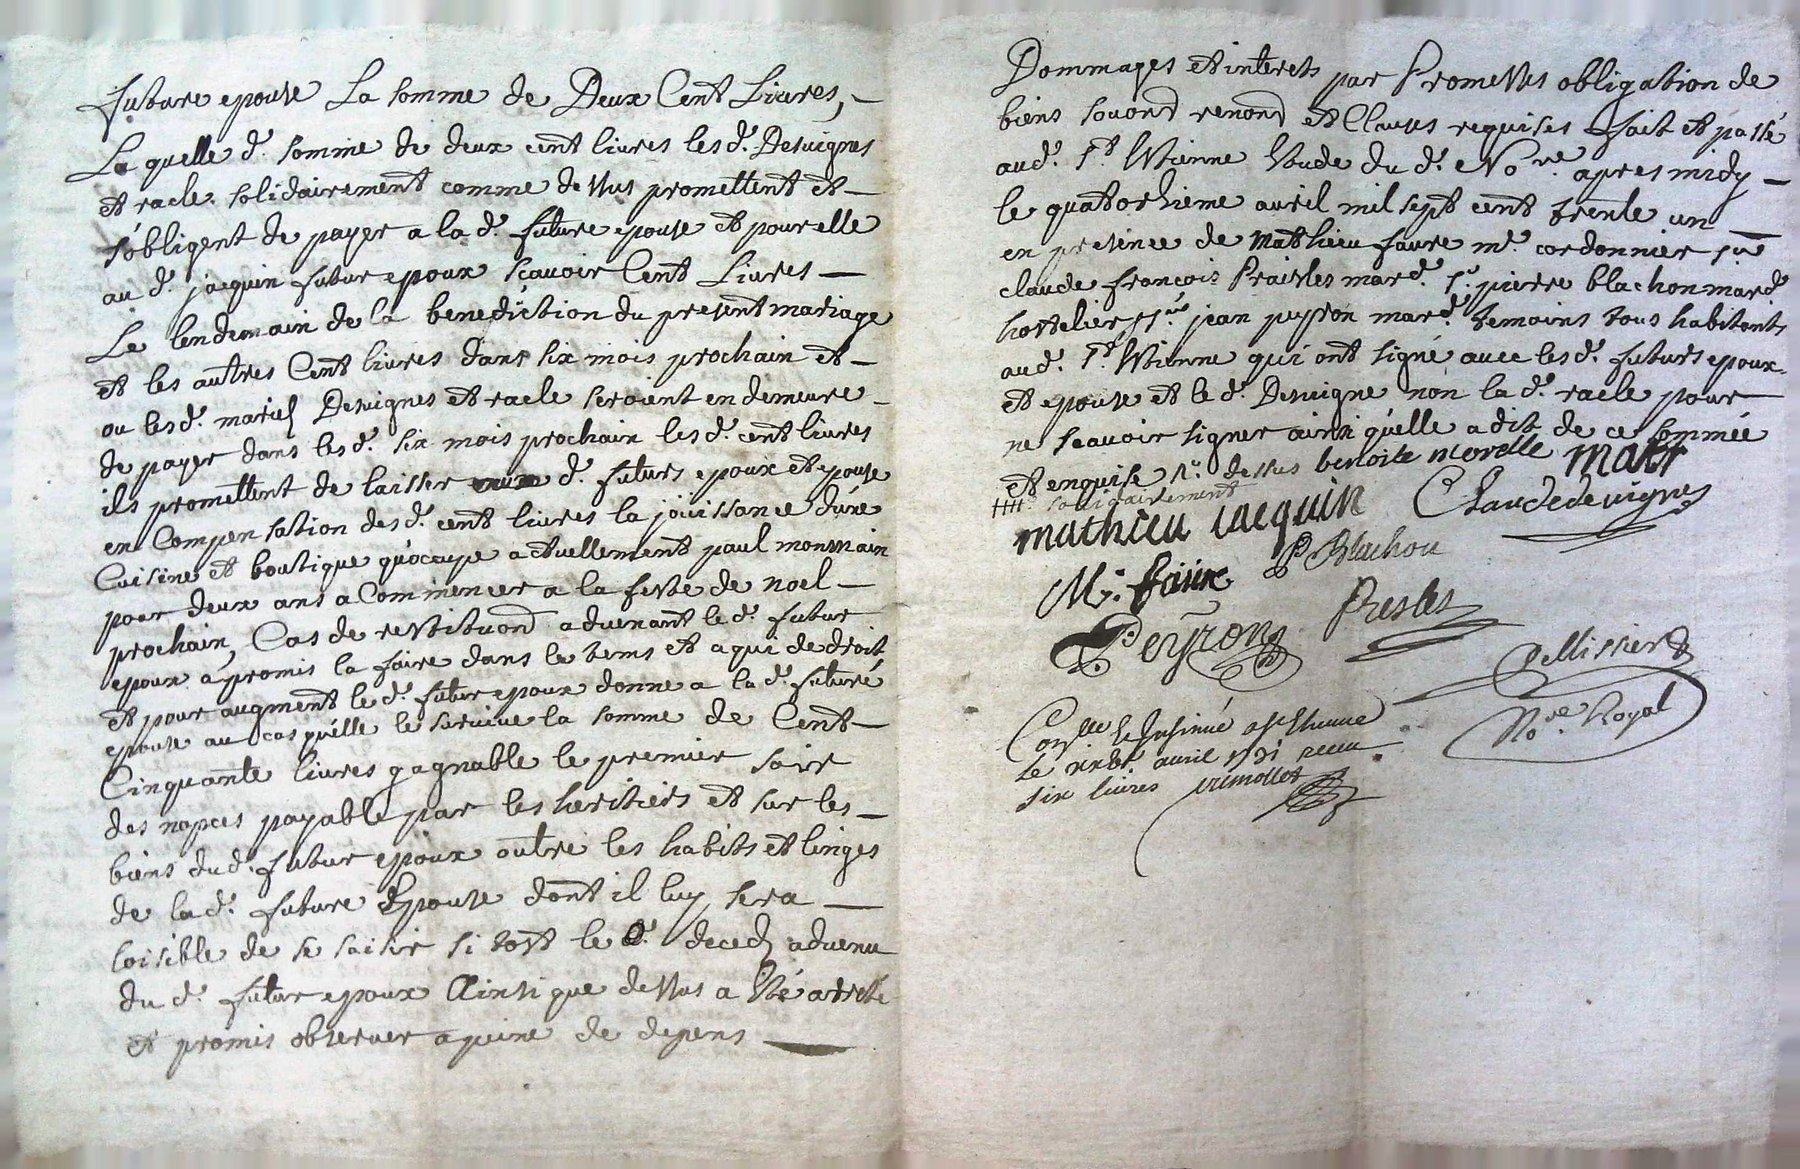 future epouse La somme de Deux Cent Livres, —
La quelle d. somme de deux cent livres les d. Desvignes
et racle solidairement comme dessus promettent et —
s'obligent de payer a la d. future epouse et pour elle
au d. jacquin futur epoux sçavoir Cent Livres —
Le lendemain de la benediction du present mariage
et les autres Cent livres dans six mois prochain et —
ou les d. mariés Desvignes et racle seroient en demeure —
de payer dans les d. six mois prochain les d. cent livres
ils promettent de laisser aux d. futurs epoux et epouse
en Compensation des d. cent livres la jouissance d'une
Cuisine et boutique qu'ocupe actuellement paul monmain
pour deux ans a Commencer a la feste de noel —
prochain, Cas de restituon advenant le d. futur
epoux a promis la faire dans le tems et a qui de droit
et pour augment le d. futur epoux donne a la d. future
epouse au cas qu'elle le survive la somme de Cent —
Cinquante livres gagnable le premier soir
des nopces payable par les heritiers et sur les —
biens du d. futur epoux outre les habits et linges
de la d. future Epouse dont il luy sera —
loisible de se saisir si tost le d. deceds advenu
du d. futur epoux Ainsi que dessus a esté arresté
et promis observer a peine de depens —
Dommages et interets par Promesses obligation de
biens soumond renond et Clauses requises fait et passé
aud. St. Etienne Etude du d. No.re apres midy —
le quatorzieme avril mil sept cent trente un —
en presence de Mathieu faure me. cordonnier sr
claude françois Praisles mard. sr. pierre blachon mard
hostelier sr jean peyron mard. temoins tous habitants
aud. St. Etienne qui ont signé avec les d. futurs epoux
et epouse et le d. Desvigne non la d. racle pour
ne scavoir signer ainsi qu'elle a dit de ce sommée
et enquise sr. dessus benoite morelle
solidairement
mathieu iacquin Claudedevignes
M. faure P Blachon
Peyron Presles
Pellissier
No.re Royal
Con.lle & Insinué a St Etienne
Le avril 1731 receu
six livres